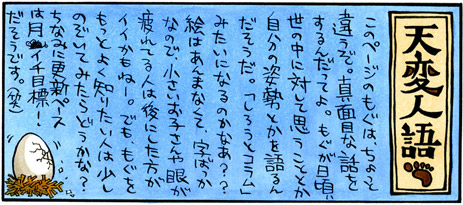 天変人語
このページのもぐは、ちょっと
違うぞ。真面目な話を
するんだってよ。もぐが日頃、
世の中に対して思うこととか
自分の姿勢とかを語るん
だそうだ。「しろうとコラム」
みたいになるのかなあ??
絵はあんまなくて、字ばっか
なので、小さいお子さんや眼が
疲れてる人は後にした方が
イイかもねー。でも、もぐを
もっとよく知りたい人は少し
のぞいてみたらどうかな?
ちなみに更新ペース
は月イチ目標!‥
だそうです。(笑)